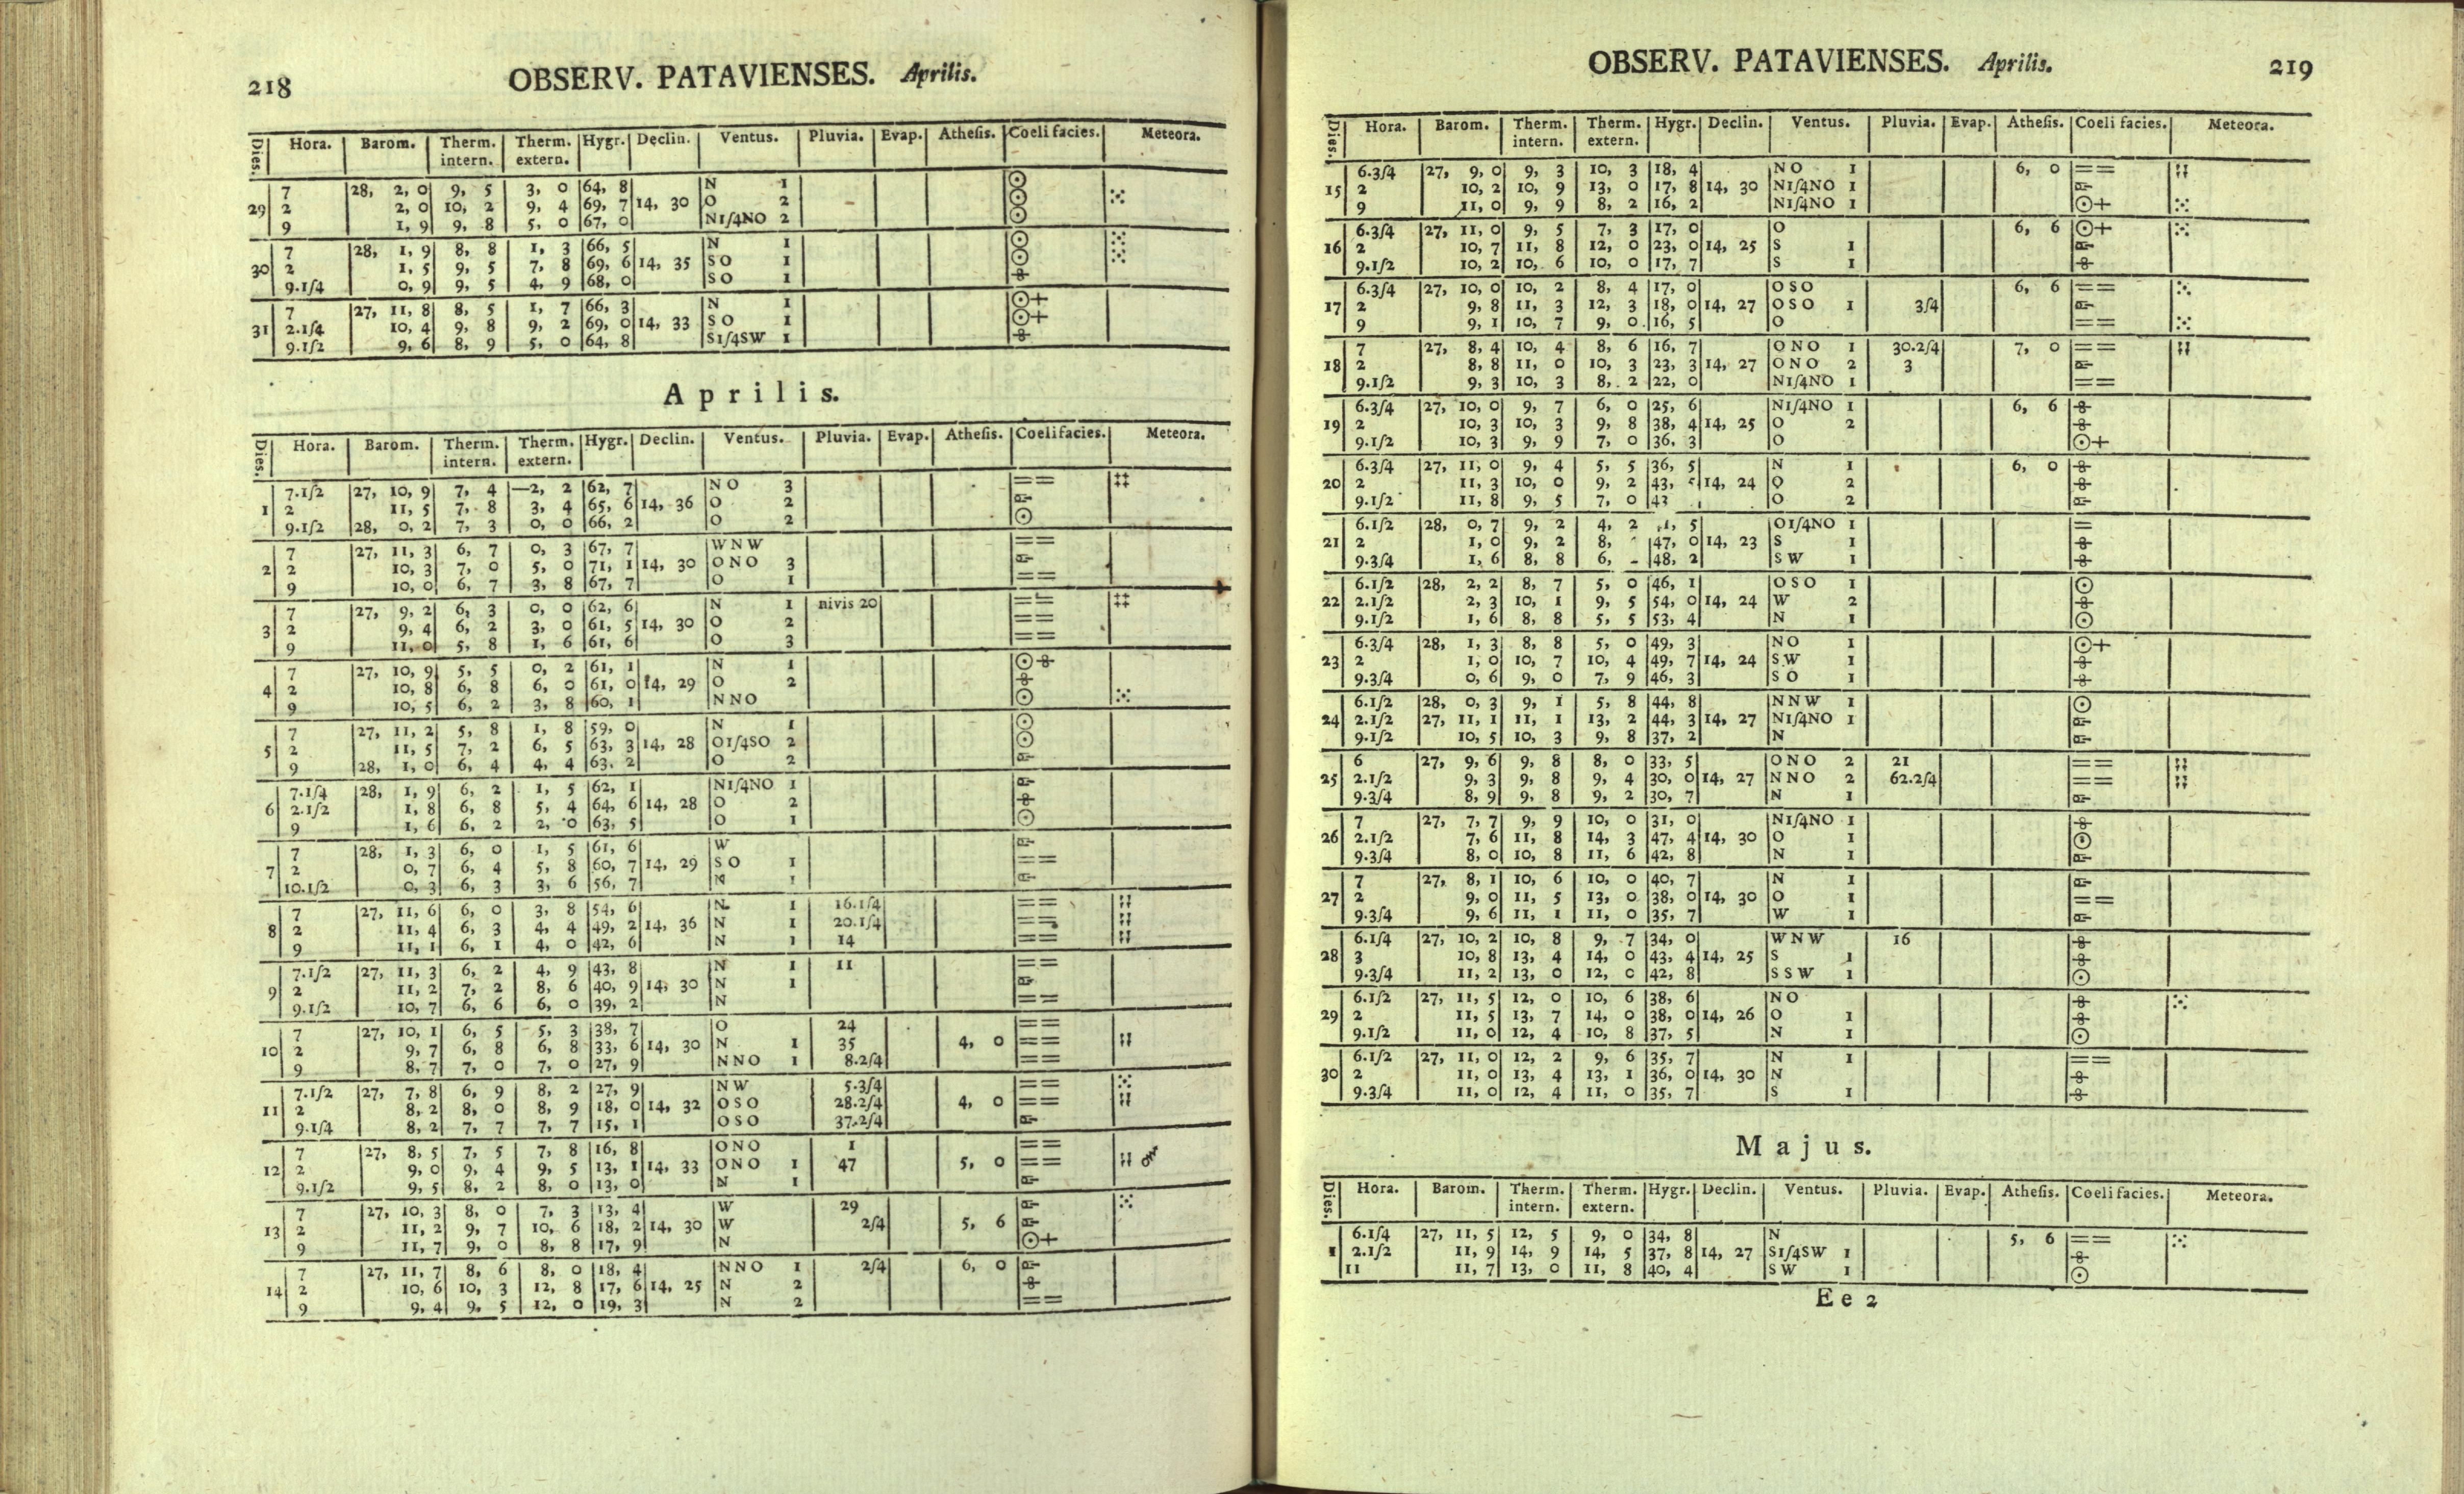 218 OBSERV. PATAVIENSES. Aprilis.
Dies. Hora. Barom. Therm. intern. Therm. extern. Hygr. Declin. Ventus. Pluvia. Evap. Athesis. Coeli facies. Meteora.
7 28, 2, 0 9, 5 3, 0 64, 8 N 1 ⊙
29 2 2, 0 10, 2 9, 4 69, 7 14, 30 O 2 ⊙
9 1, 9 9, 8 5, 0 67, 0 N1/4NO 2 ⊙
7 28, 1, 9 8, 8 1, 3 66, 5 N 1 ⊙
30 2 1, 5 9, 5 7, 8 69, 6 14, 35 SO 1 ⊙
9.1/4 0, 9 9, 5 4, 9 68, 0 SO 1
7 27, 11, 8 8, 5 1, 7 66, 3 N 1 ⊙+
31 2.1/4 10, 4 9, 8 9, 2 69, 0 14, 33 SO 1 ⊙+
9.1/2 9, 6 8, 9 5, 0 64, 8 S1/4SW 1
Aprilis.
Dies. Hora. Barom. Therm. intern. Therm. extern. Hygr. Declin. Ventus. Pluvia. Evap. Athesis. Coeli facies. Meteora.
7.1/2 27, 10, 9 7, 4 —2, 2 62, 7 NO 3 ==
1 2 11, 5 7, 8 3, 4 65, 6 14, 36 O 2
9.1/2 28, 0, 2 7, 3 0, 0 66, 2 O 2 ⊙
7 27, 11, 3 6, 7 0, 3 67, 7 WNW ==
2 2 10, 3 7, 0 5, 0 71, 1 14, 30 ONO 3
9 10, 0 6, 7 3, 8 67, 7 O 1 ==
7 27, 9, 2 6, 3 0, 0 62, 6 N 1 nivis 20 ==
3 2 9, 4 6, 2 3, 0 61, 5 14, 30 O 2 ==
9 11, 0 5, 8 1, 6 61, 6 O 3 ==
7 27, 10, 9 5, 5 0, 2 61, 1 N 1 ⊙
4 2 10, 8 6, 8 6, 0 61, 0 14, 29 O 2
9 10, 5 6, 2 3, 8 60, 1 NNO ⊙
7 27, 11, 2 5, 8 1, 8 59, 0 N 1 ⊙
5 2 11, 5 7, 2 6, 5 63, 3 14, 28 O1/4SO 2 ⊙
9 28, 1, 0 6, 4 4, 4 63. 2 O 2
7.1/4 28, 1, 9 6, 2 1, 5 62, 1 N1/4NO 1
6 2.1/2 1, 8 6, 8 5, 4 64, 6 14, 28 O 2
9 1, 6 6, 2 2, 0 63, 5 O 1 ⊙
7 28, 1, 3 6, 0 1, 5 61, 6 W
7 2 0, 7 6, 4 5, 8 60, 7 14, 29 SO 1 ==
10.1/2 0, 3 6, 3 3, 6 56, 7 N 1
7 27, 11, 6 6, 0 3, 8 54, 6 N 1 16.1/4 ==
8 2 11, 4 6, 3 4, 4 49, 2 14, 36 N 1 20.1/4 ==
9 11, 1 6, 1 4, 0 42, 6 N 1 14 ==
7.1/2 27, 11, 3 6, 2 4, 9 43, 8 N 1 11 ==
9 2 11, 2 7, 2 8, 6 40, 9 14, 30 N 1
9.1/2 10, 7 6, 6 6, 0 39, 2 N ==
7 27, 10, 1 6, 5 5, 3 38, 7 O 24 ==
10 2 9, 7 6, 8 6, 8 33, 6 14, 30 N 1 35 4, 0 ==
9 8, 7 7, 0 7, 0 27, 9 NNO 1 8.2/4 ==
7.1/2 27, 7, 8 6, 9 8, 2 27, 9 NW 5.3/4 ==
11 2 8, 2 8, 0 8, 9 18, 0 14, 32 OSO 28.2/4 4, 0 ==
9.1/4 8, 2 7, 7 7, 7 15, 1 OSO 37.2/4
7 27, 8, 5 7, 5 7, 8 16, 8 ONO 1 ==
12 2 9, 0 9, 4 9, 5 13, 1 14, 33 ONO 1 47 5, 0 ==
9.1/2 9, 5 8, 2 8, 0 13, 0 N 1
7 27, 10, 3 8, 0 7, 3 13, 4 W 29
13 2 11, 2 9, 7 10, 6 18, 2 14, 30 W 2/4 5, 6
9 11, 7 9, 0 8, 8 17, 9 N ⊙+
7 27, 11, 7 8, 6 8, 0 18, 4 NNO 1 2/4 6, 0
14 2 10, 6 10, 3 12, 8 17, 6 14, 25 N 2
9 9, 4 9. 5 12, 0 19, 3 N 2 ==
OBSERV. PATAVIENSES. Aprilis. 219
Dies. Hora. Barom. Therm. intern. Therm. extern. Hygr. Declin. Ventus. Pluvia. Evap. Athesis. Coeli facies. Meteora.
6.3/4 27, 9, 0 9, 3 10, 3 18, 4 NO 1 6, 0 ==
15 2 10, 2 10, 9 13, 0 17, 8 14, 30 N1/4NO 1
9 11, 0 9, 9 8, 2 16, 2 N1/4NO 1 ⊙+
6.3/4 27, 11, 0 9, 5 7, 3 17, 0 O 6, 6 ⊙+
16 2 10, 7 11, 8 12, 0 23, 0 14, 25 S 1
9.1/2 10, 2 10, 6 10, 0 17, 7 S 1
6.3/4 27, 10, 0 10, 2 8, 4 17, 0 OSO 6, 6 ==
17 2 9, 8 11, 3 12, 3 18, 0 14, 27 OSO 1 3/4
9 9, 1 10, 7 9, 0 16, 5 O ==
7 27, 8, 4 10, 4 8, 6 16, 7 ONO 1 30.2/4 7, 0 ==
18 2 8, 8 11, 0 10, 3 23, 3 14, 27 ONO 2 3
9.1/2 9, 3 10, 3 8, 2 22, 0 N1/4NO 1 ==
6.3/4 27, 10, 0 9, 7 6, 0 25, 6 N1/4NO 1 6, 6
19 2 10, 3 10, 3 9, 8 38, 4 14, 25 O 2
9.1/2 10, 3 9, 9 7, 0 36, 3 O ⊙+
6.3/4 27, 11, 0 9, 4 5, 5 36, 5 N 1 6, 0
20 2 11, 3 10, 0 9, 2 43, 14, 24 O 2
9.1/2 11, 8 9, 5 7, 0 43 O 2
6.1/2 28, 0, 7 9, 2 4, 2 5 O1/4NO 1 =
21 2 1, 0 9, 2 8, 47, 0 14, 23 S 1
9.3/4 1, 6 8, 8 6, 48, 2 SW 1
6.1/2 28, 2, 2 8, 7 5, 0 46, 1 OSO 1 ⊙
22 2.1/2 2, 3 10, 1 9, 5 54, 0 14, 24 W 2
9.1/2 1, 6 8, 8 5, 5 53, 4 N 1 ⊙
6.3/4 28, 1, 3 8, 8 5, 0 49, 3 NO 1 ⊙+
23 2 1, 0 10, 7 10, 4 49, 7 14, 24 S.W 1
9.3/4 0, 6 9, 0 7, 9 46, 3 SO 1
6.1/2 28, 0, 3 9, 1 5, 8 44, 8 NNW 1 ⊙
24 2.1/2 27, 11, 1 11, 1 13, 2 44, 3 14, 27 N1/4NO 1
9.1/2 10, 5 10, 3 9, 8 37, 2 N
6 27, 9, 6 9, 8 8, 0 33, 5 ONO 2 21 ==
25 2.1/2 9, 3 9, 8 9, 4 30, 0 14, 27 NNO 2 62.2/4 ==
9.3/4 8, 9 9, 8 9, 2 30, 7 N 1
7 27, 7, 7 9, 9 10, 0 31, 0 N1/4NO 1
26 2.1/2 7, 6 11, 8 14, 3 47, 4 14, 30 O 1 ⊙
9.3/4 8, 0 10, 8 11, 6 42, 8 N 1
7 27, 8, 1 10, 6 10, 0 40, 7 N 1
27 2 9, 0 11, 5 13, 0 38, 0 14, 30 O 1 ==
9.3/4 9, 6 11, 1 11, 0 35, 7 W 1
6.1/4 27, 10, 2 10, 8 9, 7 34, 0 WNW 16
28 3 10, 8 13, 4 14, 0 43, 4 14, 25 S 1
9.3/4 11, 2 13, 0 12, 0 42, 8 SSW 1 ⊙
6.1/2 27, 11, 5 12, 0 10, 6 38, 6 NO
29 2 11, 5 13, 7 14, 0 38, 0 14, 26 O 1
9.1/2 11, 0 12, 4 10, 8 37, 5 N 1 ⊙
6.1/2 27, 11, 0 12, 2 9, 6 35, 7 N 1 ==
30 2 11, 0 13, 4 13, 1 36, 0 14, 30 N
9.3/4 11, 0 12, 4 11, 0 35, 7 S 1
Majus.
Dies. Hora. Barom. Therm. intern. Therm. extern. Hygr. Declin. Ventus. Pluvia. Evap. Athesis. Coeli facies. Meteora.
6.1/4 27, 11, 5 12, 5 9, 0 34, 8 N 5, 6 ==
1 2.1/2 11, 9 14, 9 14, 5 37, 8 14, 27 S1/4SW 1
11 11, 7 13, 0 11, 8 40, 4 SW 1 ⊙
Ee 2